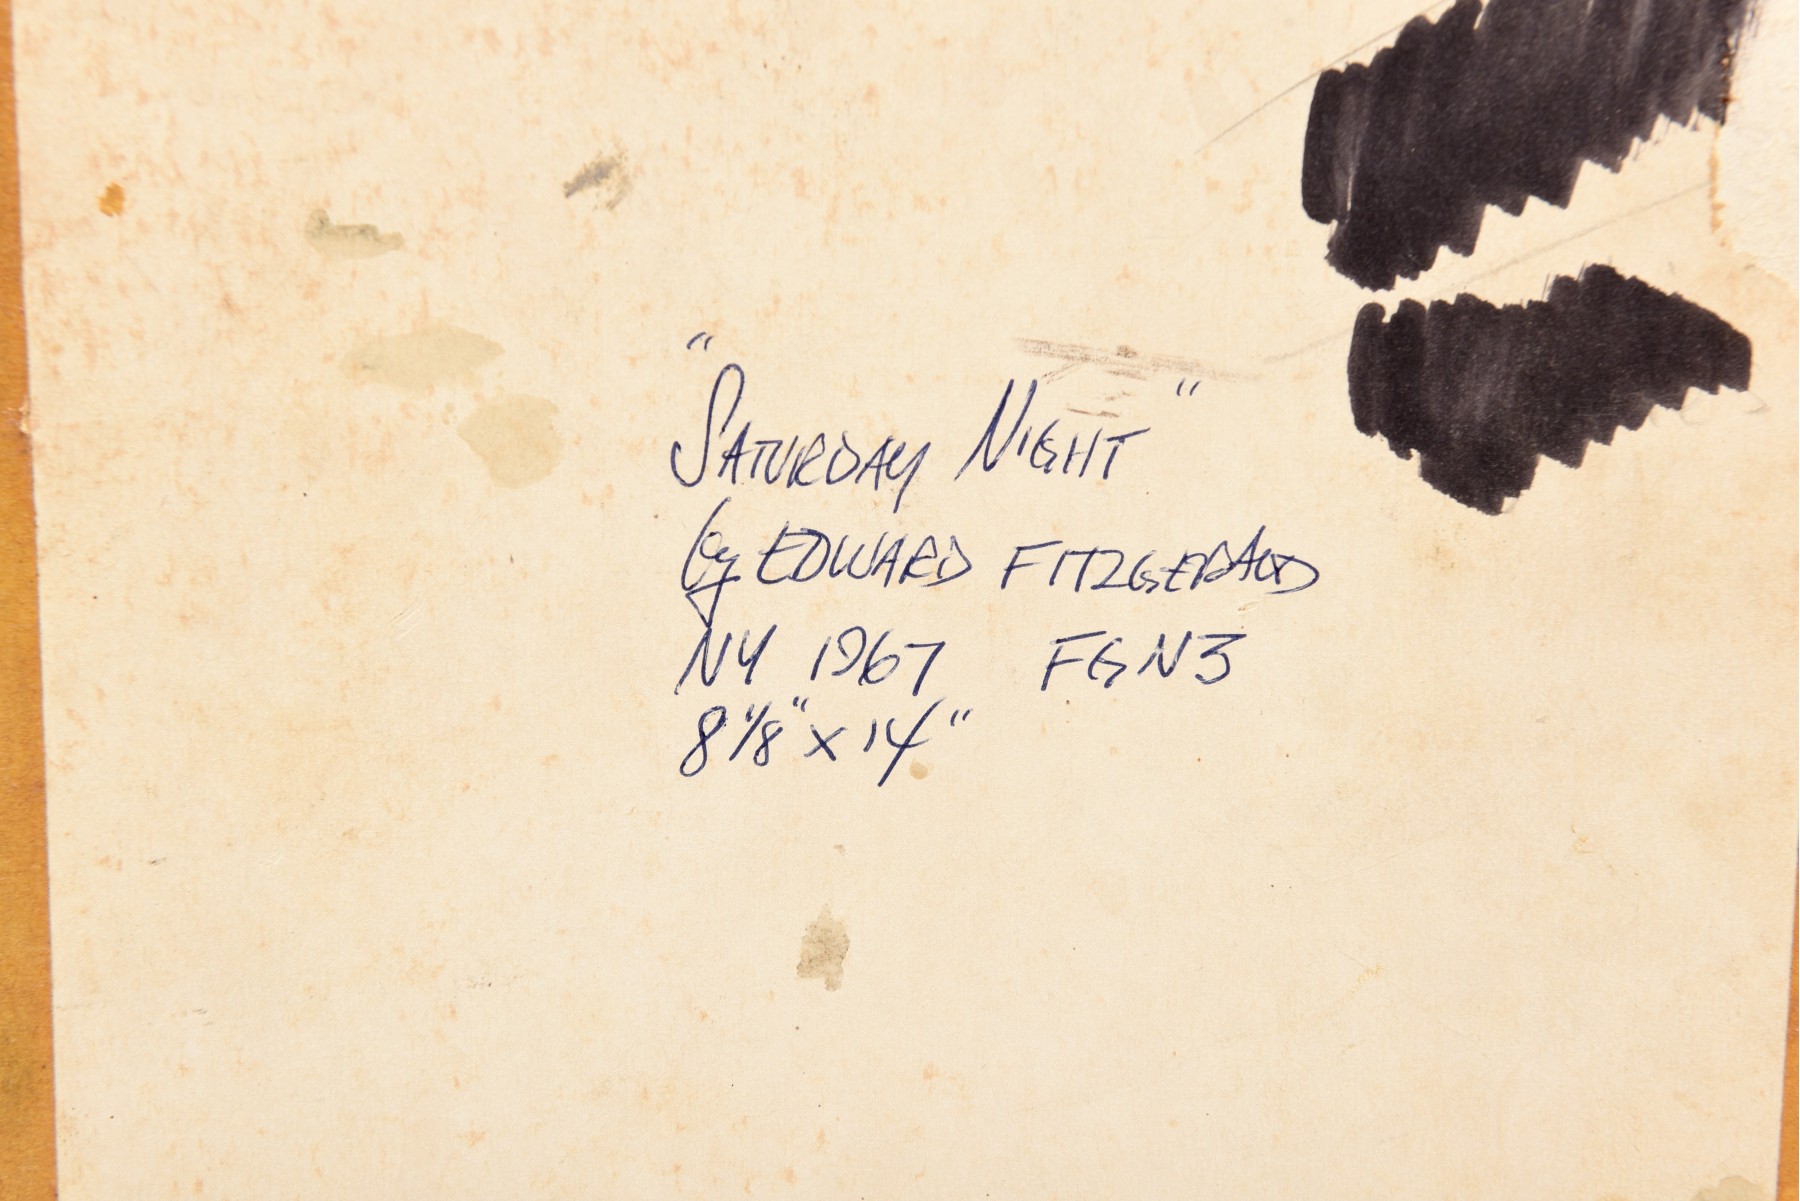 "SATURDAY NIGHT"
by EDWARD FITZGERALD
NY 1967 FGN3
8 1/8" x 14"